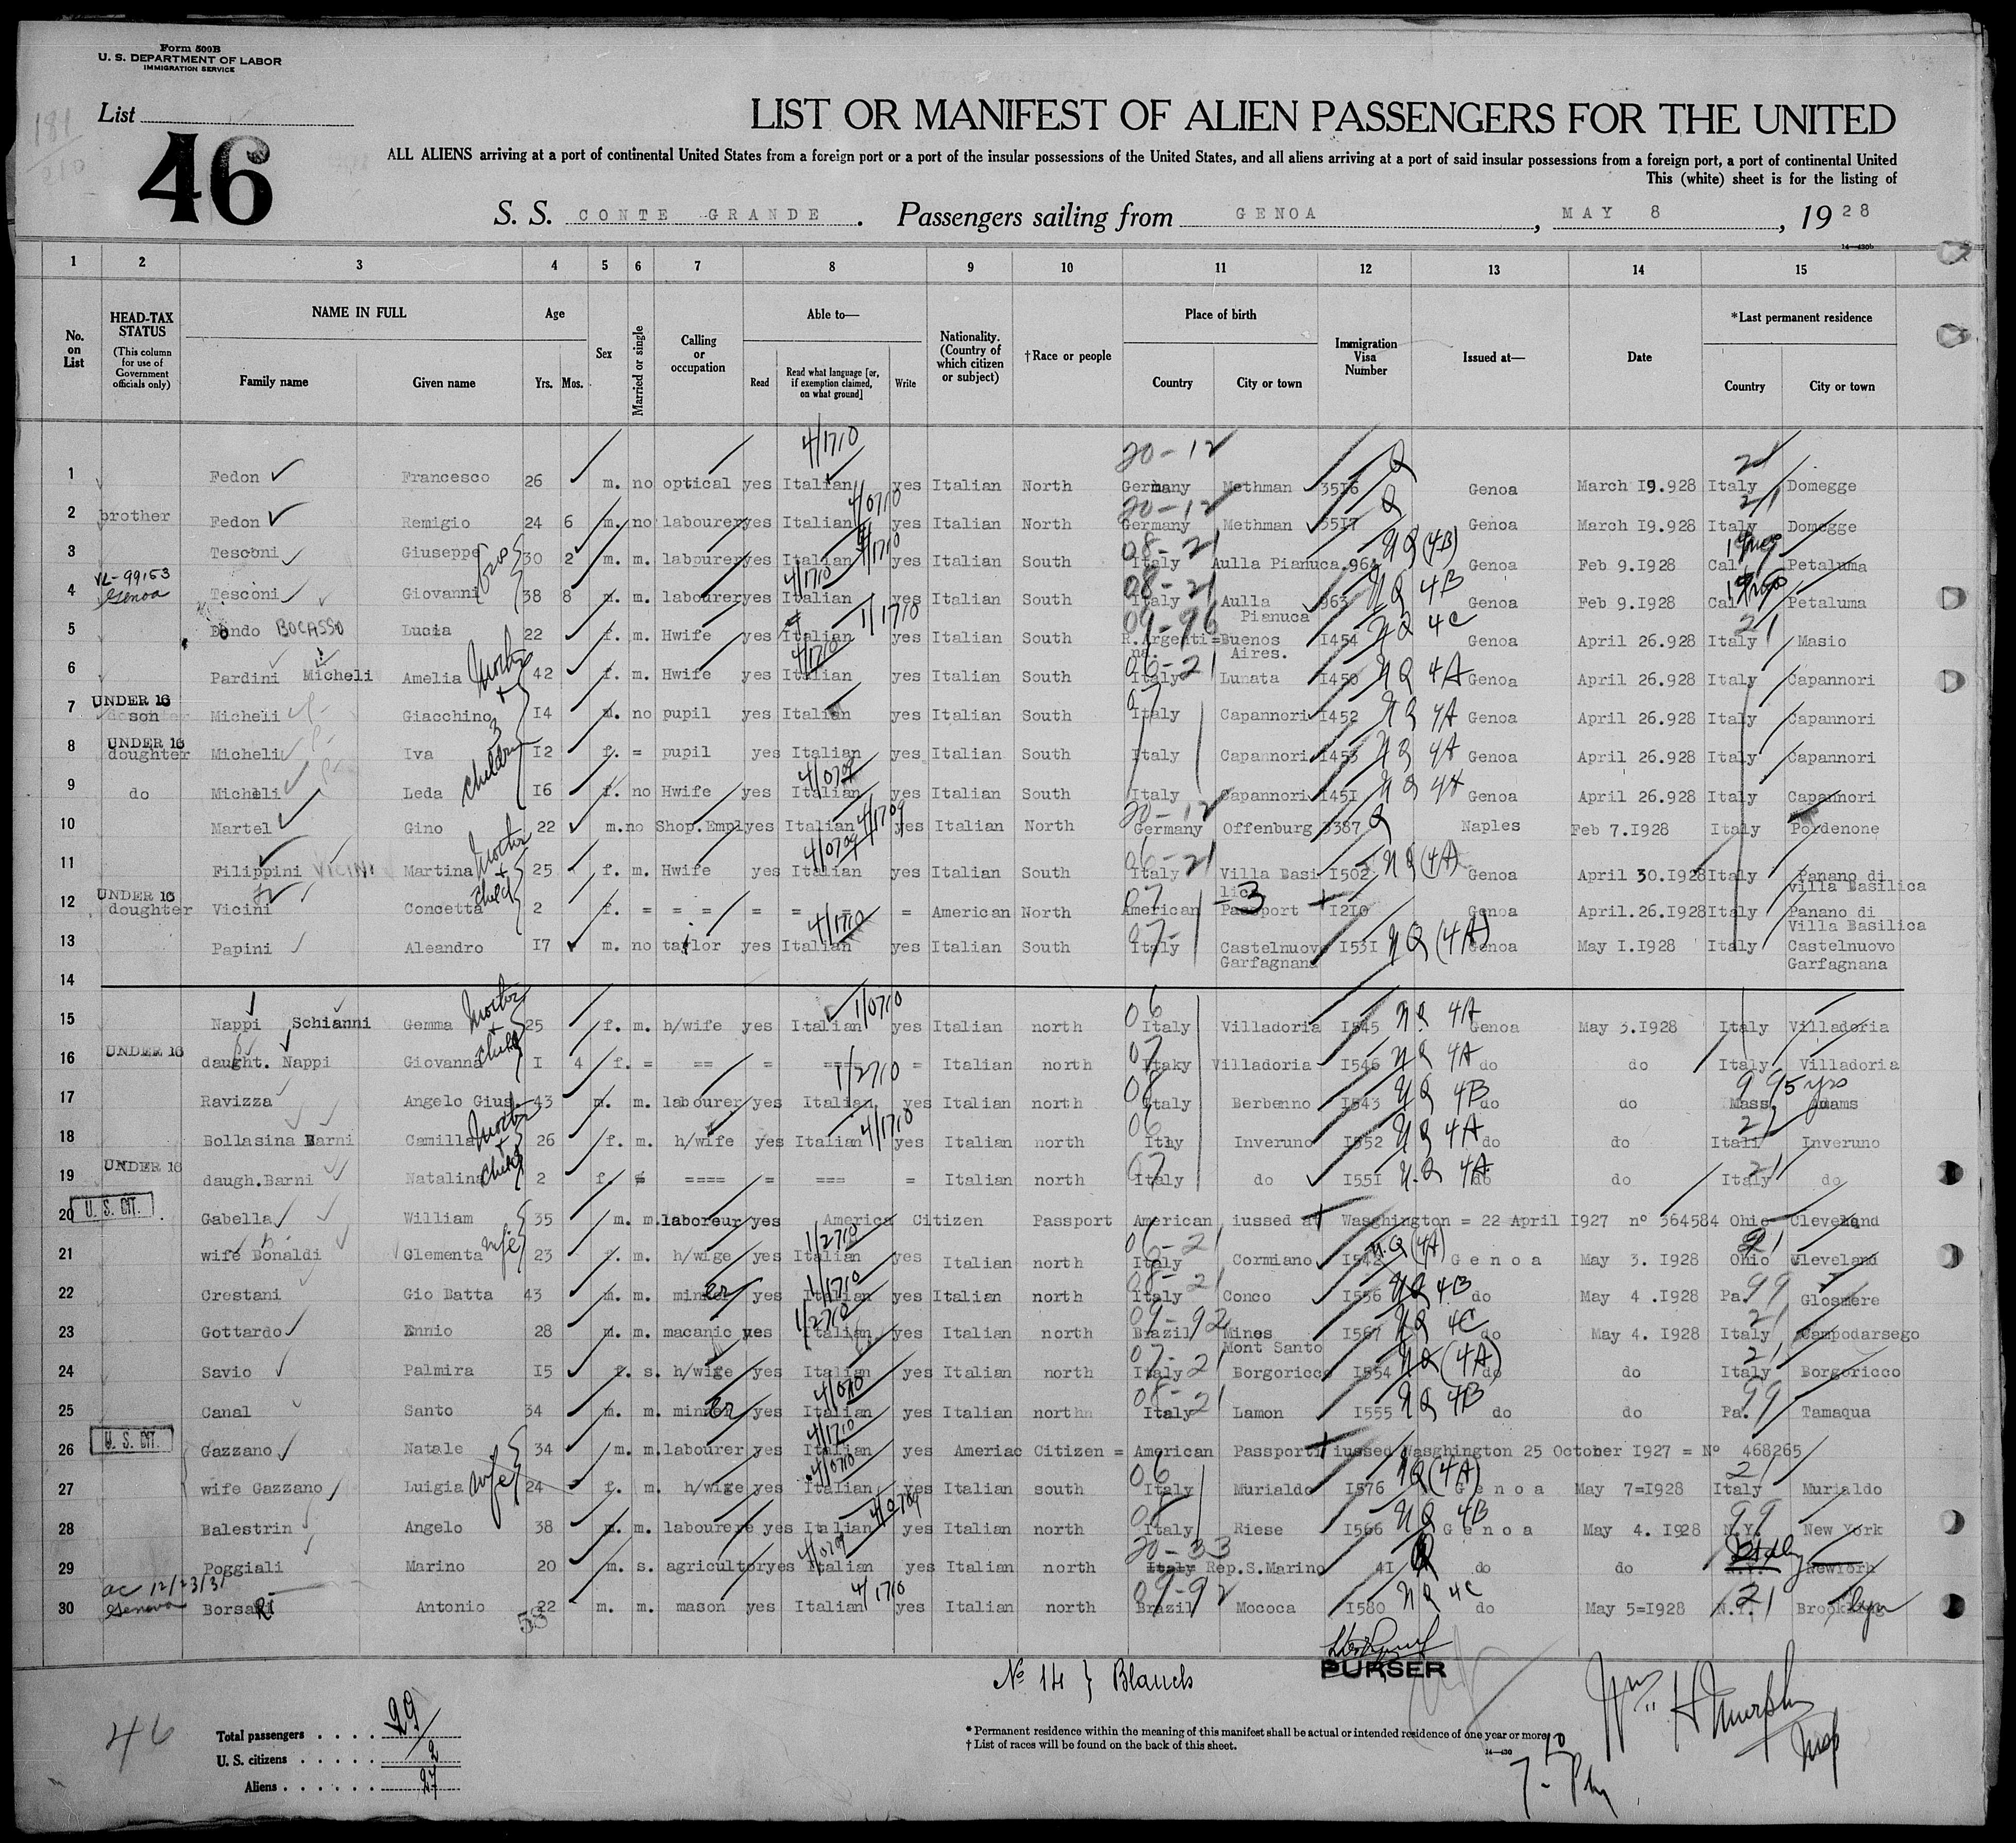 Form 500B
U. S. DEPARTMENT OF LABOR
IMMIGRATION SERVICE
List
46
LIST OR MANIFEST OF ALIEN PASSENGERS FOR THE UNITED
ALL ALIENS arriving at a port of continental United States from a foreign port or a port of the insular possessions of the United States, and all aliens arriving at a port of said insular possessions from a foreign port, a port of continental United
This (white) sheet is for the listing of
S. S. CONTE GRANDE. Passengers sailing from GENOA, MAY 8, 1928
14—430b
1 2 3 4 5 6 7 8 9 10 11 12 13 14 15
No. on List HEAD-TAX STATUS (This column for use of Government officials only) NAME IN FULL Family name Given name Age Yrs. Mos. Sex Married or single Calling or occupation Able to— Read Read what language [or, if exemption claimed, on what ground] Write Nationality. (Country of which citizen or subject) †Race or people Place of birth Country City or town Immigration Visa Number Issued at— Date *Last permanent residence Country City or town
1 Fedon Francesco 26 m. no optical yes Italian 4/1710 yes Italian North 20-12 Germany Methman 3516 Q Genoa March I9.928 21 Italy Domegge
2 brother Fedon Remigio 24 6 m. no labourer yes Italian 4/0710 yes Italian North 20-12 Germany Methman 3517 Q Genoa March I9.928 21 Italy Domegge
3 Tesconi Giuseppe bros 30 2 m. m. labourer yes Italian 4/1710 yes Italian South 08-21 Italy Aulla Pianuca 964 NQ (4B) Genoa Feb 9.I928 Cal Petaluma
4 VL-99153 Genoa Tesconi Giovanni 38 8 m. m. labourer yes Italian 4/1710 yes Italian South 08-21 Italy Aulla Pianuca 963 NQ 4B Genoa Feb 9.I928 Cal Petaluma
5 Bondo BOCASSO Lucia 22 f. m. Hwife yes Italian 1/1710 yes Italian South 09-96 R.Argenti=na. Buenos Aires. I454 NQ 4C Genoa April 26.928 21 Italy Masio
6 Pardini Micheli Amelia 42 f. m. Hwife yes Italian 4/1710 yes Italian South 06-21 Italy Lunata I450 NQ 4A Genoa April 26.928 Italy Capannori
7 UNDER 16 son Micheli Giacchino I4 m. no pupil yes Italian yes Italian South 07 Italy Capannori I452 NQ 4A Genoa April 26.928 Italy Capannori
8 UNDER 16 doughter Micheli Iva I2 f. = pupil yes Italian yes Italian South Italy Capannori I453 NQ 4A Genoa April 26.928 Italy Capannori
9 do Micheli Leda I6 f. no Hwife yes Italian 4/0709 yes Italian South Italy Capannori I451 NQ 4A Genoa April 26.928 Italy Capannori
10 Martel Gino 22 m. no Shop.Empl yes Italian 4/1709 yes Italian North 20-12 Germany Offenburg 3387 Q Naples Feb 7.I928 Italy Pordenone
11 Filippini VICINI Martina 25 f. m. Hwife yes Italian 4/0709 yes Italian South 06-21 Italy Villa Basilica I502 NQ (4A) Genoa April 30.I928 Italy Panano di Villa Basilica
12 UNDER 16 doughter Vicini Concetta 2 f. = = = = = = = American North 07 -3 American Passport I2I0 Genoa April.26.I928 Italy Panano di Villa Basilica
13 Papini Aleandro I7 m. no taylor yes Italian 4/1710 yes Italian South 07- Italy Castelnuovo Garfagnana I53I NQ (4A) Genoa May I.I928 Italy Castelnuovo Garfagnana
14
15 Nappi Schianni Gemma 25 f. m. h/wife yes Italian 1/0710 yes Italian north 06 Italy Villadoria I545 NQ 4A Genoa May 3.I928 Italy Villadoria
16 UNDER 16 daught. Nappi Giovanna I 4 f. = == = ==== = Italian north 07 Itaky Villadoria I546 NQ 4A do do Italy Villadoria
17 Ravizza Angelo Gius. 43 m. m. labourer yes Italian 1/2710 yes Italian north 08 Italy Berbenno I543 NQ 4B do do 9 95 yrs Mass Adams
18 Bollasina Barni Camilla 26 f. m. h/wife yes Italian 4/1710 yes Italian north 06 Itly Inveruno I552 NQ 4A do do 21 Itali Inveruno
19 UNDER 16 daugh.Barni Natalina 2 f. = ==== = === = Italian north 07 Italy do I55I NQ 4A do do 21 Italy do
20 U. S. CIT. Gabella William 35 m. m. laboreur yes America Citizen Passport American iussed at Wasghington = 22 April I927 n° 364584 Ohio Cleveland
21 wife Bonaldi Clementa wife 23 f. m. h/wige yes Italian 1/2710 yes Italian north 06-21 Italy Cormiano I542 N.Q (4A) Genoa May 3. I928 21 Ohio Cleveland
22 Crestani Gio Batta 43 m. m. minner yes Italian 1/1710 yes Italian north 08-21 Italy Conco I556 NQ 4B do May 4 .I928 99 Pa. Glosmere
23 Gottardo Ennio 28 m. m. macanic yes Italian 1/2710 yes Italian north 09-92 Brazil Mines Mont Santo I567 NQ 4C do May 4. I928 21 Italy Campodarsego
24 Savio Palmira I5 f. s. h/wige yes Italian yes Italian north 07-21 Italy Borgoricco I554 NQ (4A) do do 21 Italy Borgoricco
25 Canal Santo 34 m. m. minner yes Italian 4/0710 yes Italian northn 08-21 Italy Lamon I555 NQ 4B do do 99 Pa. Tamaqua
26 U. S. CIT. Gazzano Natale 34 m. m. labourer yes Italian 4/1710 yes Ameriac Citizen = American Passport iussed Wasghington 25 October I927 = N° 468265
27 wife Gazzano Luigia wife 24 f. m. h/wige yes Italian 4/0710 yes Italian south 06 Italy Murialdo I576 NQ (4A) Genoa May 7=I928 21 Italy Murialdo
28 Balestrin Angelo 38 m. m. labourere yes Italian 4/0709 yes Italian north 08 Italy Riese I566 NQ 4B Genoa May 4. I928 99 N.Y. New York
29 Poggiali Marino 20 m. s. agricultor yes Italian 4/0709 yes Italian north 20-33 Italy Rep.S.Marino 4I Q do do N.Y. Italy NewYork
30 ac 12/23/31 Genova Borsari Antonio 22 m. m. mason yes Italian 4/1710 yes Italian north 09-92 Brazil Mococa I580 NQ 4C do May 5=I928 21 N.Y. Brooklyn
53
PURSER
No 14 } Blanch
46
Total passengers 29
U. S. citizens 2
Aliens 27
* Permanent residence within the meaning of this manifest shall be actual or intended residence of one year or more.
† List of races will be found on the back of this sheet.
14—430
Wm H Murphy
Insp